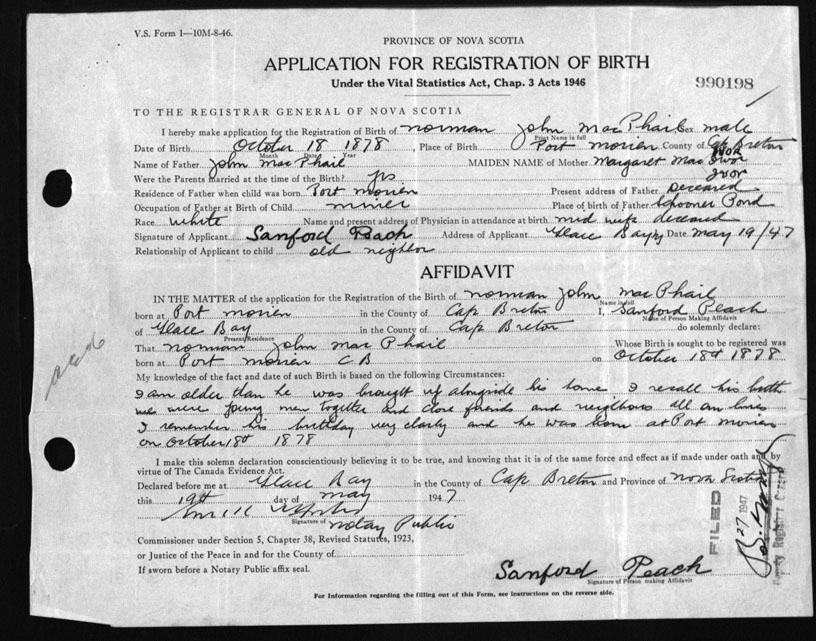 V.S. Form 1—10M-8-46.
PROVINCE OF NOVA SCOTIA
APPLICATION FOR REGISTRATION OF BIRTH
Under the Vital Statistics Act, Chap. 3 Acts 1946
990198
TO THE REGISTRAR GENERAL OF NOVA SCOTIA
I hereby make application for the Registration of Birth of norman John MacPhail Sex male
Print Name in full
Date of Birth October 18 1878, Place of Birth Port morien County of Cap Breton
Month Date Year
Name of Father John MacPhail MAIDEN NAME of Mother Margaret Mac Ivor
Ivor
Were the Parents married at the time of the Birth? yes
Residence of Father when child was born Port morien Present address of Father Deceased
Occupation of Father at Birth of Child miner Place of birth of Father Schooner Pond
Race white Name and present address of Physician in attendance at birth mid wife deceased
Signature of Applicant Sanford Peach Address of Applicant Glace Bay Date May 19/47
Relationship of Applicant to child old neighbor
AFFIDAVIT
IN THE MATTER of the application for the Registration of the Birth of norman John macPhail
Name in full
born at Port morien in the County of Cap Breton I, Sanford Peach
Name of Person Making Affidavit
of Glace Bay in the County of Cap Breton do solemnly declare:
Present Residence
That norman John macPhail Whose Birth is sought to be registered was
born at Port morien C B on October 18th 1878
My knowledge of the fact and date of such Birth is based on the following Circumstances:
I am older than he was brought up alongside his home I recall his birth
we were young men together and close friends and neighbors all our lives
I remember his birthday very clearly and he was born at Port morien
on October 18th 1878
I make this solemn declaration conscientiously believing it to be true, and knowing that it is of the same force and effect as if made under oath and by
virtue of The Canada Evidence Act.
Declared before me at Glace Bay in the County of Cap Breton and Province of nova Scotia
this 19th day of may 1947
Signature of notary Public
Commissioner under Section 5, Chapter 38, Revised Statutes, 1923,
or Justice of the Peace in and for the County of
If sworn before a Notary Public affix seal.
Sanford Peach
Signature of Person making Affidavit
For Information regarding the filling out of this Form, see instructions on the reverse side.
FILED
27 1947
Deputy Registrar General